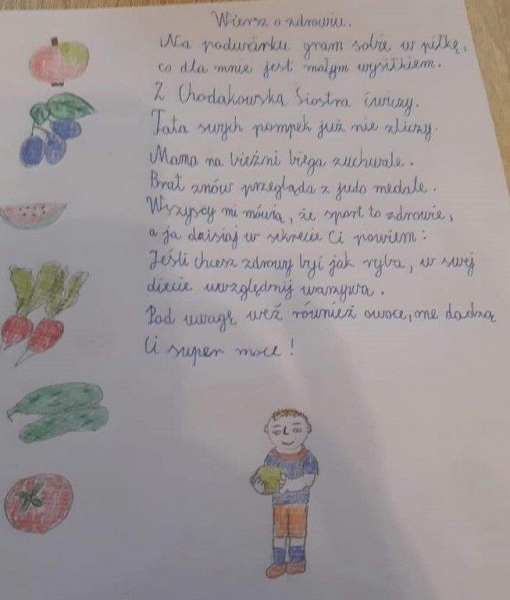 Wiersz o zdrowiu.
Na podwórku gram sobie w piłkę,
co dla mnie jest małym wysiłkiem.
Z Chodakowską Siostra ćwiczy.
Tata swych pompek już nie zliczy.
Mama na bieżni biega zuchwale.
Brat znów przegląda z judo medale.
Wszyscy mi mówią, że sport to zdrowie,
a ja dzisiaj w sekrecie Ci powiem:
Jeśli chcesz zdrowy być jak ryba, w swej
diecie uwzględnij warzywa.
Pod uwagę weź również owoce, one dadzą
Ci super moce!